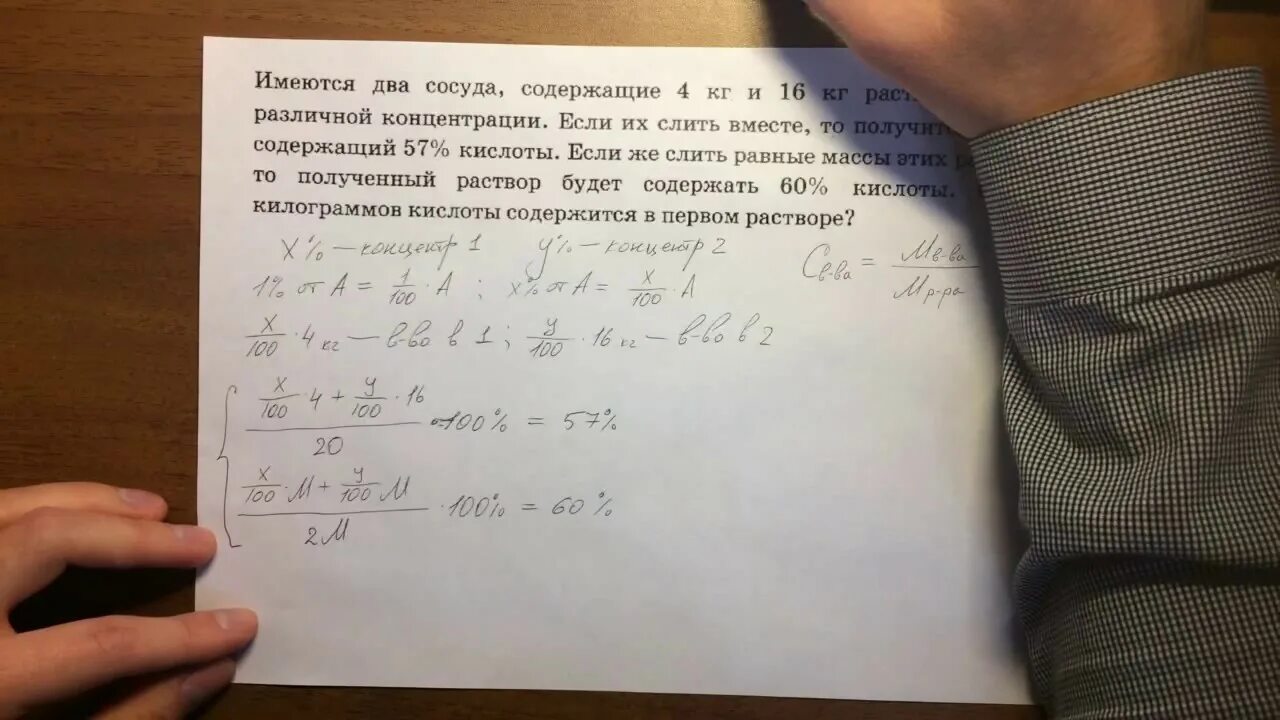 Имеются два сосуда, содержащие 4 кг и 16 кг
различной концентрации. Если их слить вместе, то
содержащий 57% кислоты. Если же слить равные массы этих
то полученный раствор будет содержать 60% кислоты.
килограммов кислоты содержится в первом растворе?
x% — концентр 1 y% — концентр 2
1% от A = 1/100 · A ; x% от A = x/100 · A
C в-ва = M в-ва / M р-ра
x/100 · 4 кг — в-во в 1 ; y/100 · 16 кг — в-во в 2
(x/100 · 4 + y/100 · 16) / 20 · 100% = 57%
(x/100 · M + y/100 M) / 2M · 100% = 60%